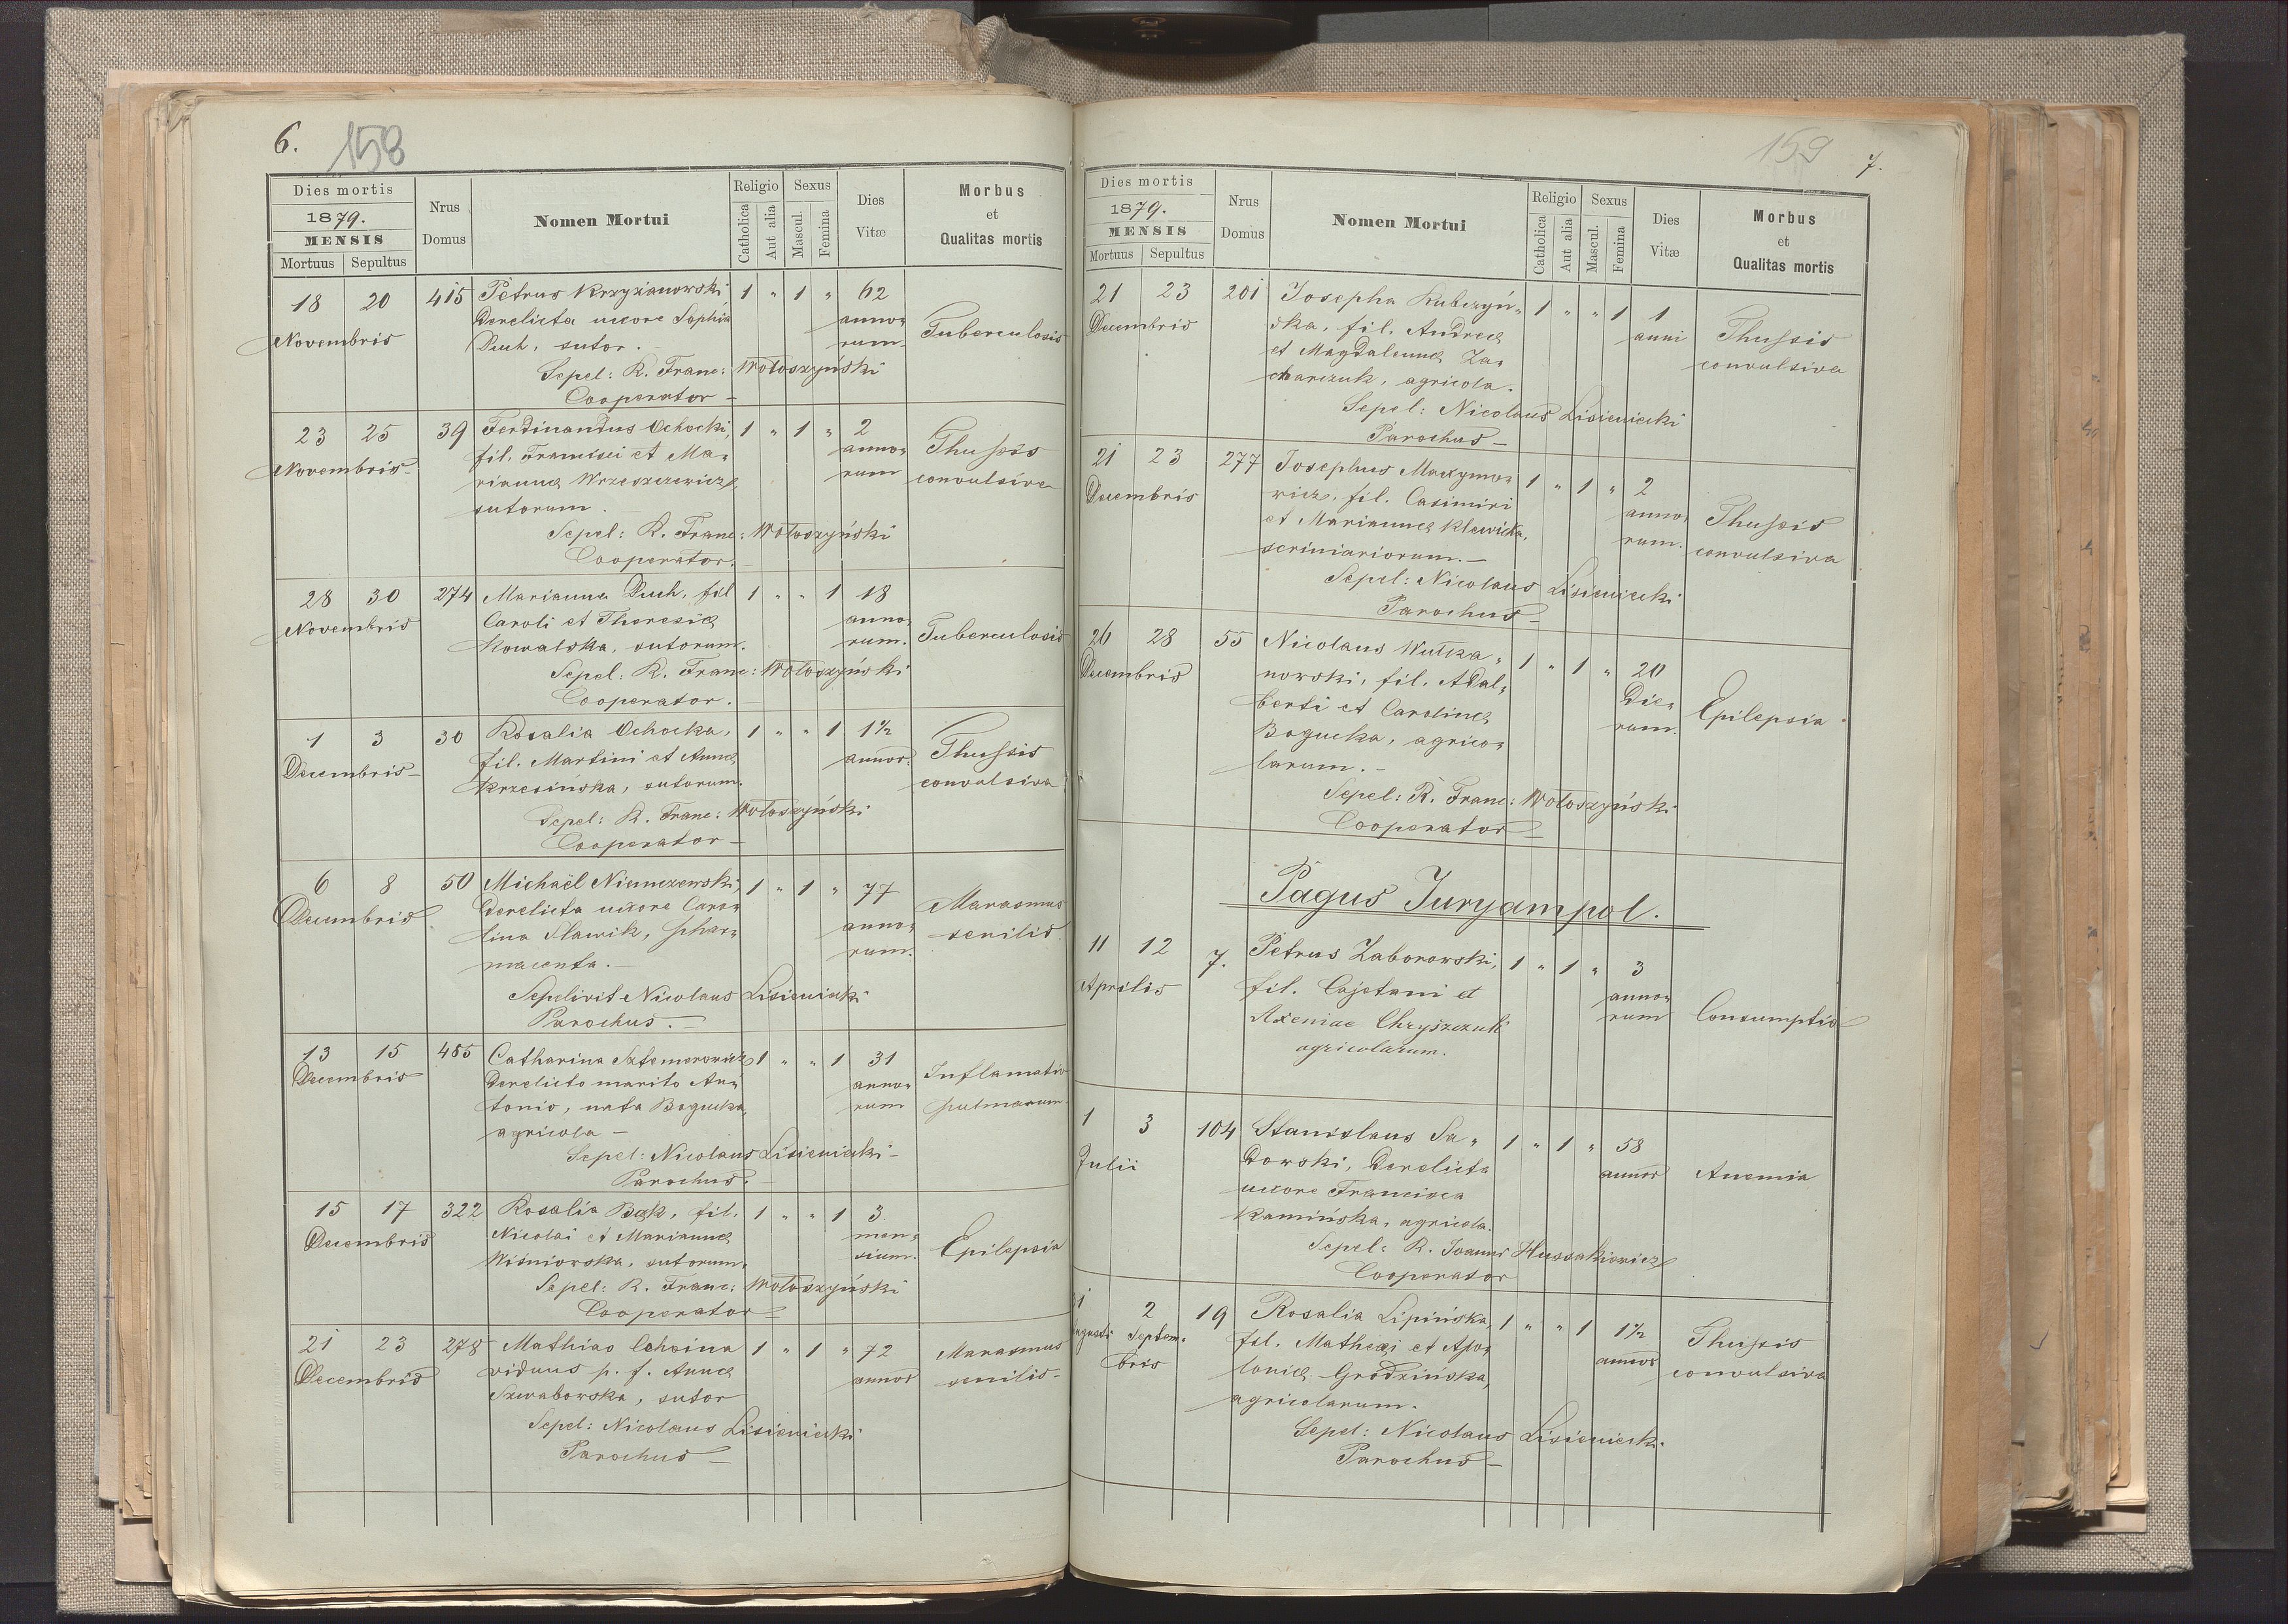 6.
158
Dies mortis
1879.
MENSIS
Mortuus Sepultus
Nrus
Domus
Nomen Mortui
Religio
Catholica
Aut alia
Sexus
Mascul.
Femina
Dies
Vitæ
Morbus
et
Qualitas mortis
18 20 415 Petrus Krzyżanowski 1 " 1 " 62
Novembris
derelicta uxore Sophia anno„
Duch, sutor. rum. Tuberculosis
Sepel: R. Franc: Wołoszyński
Cooperator –
23 25 39 Ferdinandus Ochocki, 1 " 1 " 2
Novembris
fil. Francisci et Ma„ anno„ Thussis
riannæ Wrzeszczewicz, rum convulsiva
sutorum.
Sepel: R. Franc: Wołoszyński
Cooperator.
28 30 274 Marianna Duch, fil 1 " " 1 18
Novembris
Caroli et Theresiæ anno„
Kowalska, sutorum. rum. Tuberculosis
Sepel: R. Franc: Wołoszyński
Cooperator. –
1 3 30 Rosalia Ochocka, 1 " " 1 1½
Decembris
fil. Martini et Annæ annor. Thussis
Krzesińska, sutorum. convulsiva
Sepel: R. Franc: Wołoszyński
Cooperator –
6 8 50 Michaël Niemczewski, 1 " 1 " 77
Decembris
derelicta uxore Caro„ anno„ Marasmus
lina Sławik, phar„ rum. senilis.
macenta. –
Sepelivit Nicolaus Lisieniecki
Parochus. –
13 15 485 Catharina Sztemerowicz 1 " " 1 31
Decembris
derelicto marito An„ anno„ Inflamatio
tonio, nata Bogucka, rum pulmonum
agricola –
Sepel: Nicolaus Lisieniecki –
Parochus. –
15 17 322 Rosalia Bąk, fil. 1 " " 1 3.
Decembris
Nicolai et Mariannæ men„
Wiśniowska, sutorum. sium. Epilepsia
Sepel: R. Franc: Wołoszyński
Cooperator –
21 23 278 Mathias Ochoina 1 " 1 " 72 Marasmus
Decembris
viduus p. f. Annæ annor senilis –
Szwabowska, sutor
Sepel: Nicolaus Lisieniecki
Parochus –
159
7.
Dies mortis
1879.
MENSIS
Mortuus Sepultus
Nrus
Domus
Nomen Mortui
Religio
Catholica
Aut alia
Sexus
Mascul.
Femina
Dies
Vitæ
Morbus
et
Qualitas mortis
21 23 201 Josepha Kubczyń„ 1 " " 1 1
Decembris
ska, fil. Andreæ anni Thussis
et Magdalennæ Za„ convulsiva
charczuk, agricola.
Sepel: Nicolaus Lisieniecki
Parochus –
21 23 277 Josephus Maxymo„ 1 " 1 " 2
Decembris
wicz, fil. Casimiri anno„ Thussis
et Mariannæ Klewicka, rum. convulsiva
scriniariorum. –
Sepel: Nicolaus Lisieniecki
Parochus –
26 28 55 Nicolaus Wułka„ 1 " 1 " 20
Decembris
nowski, fil. Adal„ die„ Epilepsia
berti et Carolinæ rum.
Bogucka, agrico„
larum. –
Sepel: R. Franc: Wołoszyński
Cooperator –
Pagus Juryampol.
11 12 7. Petrus Zaborowski, 1 " 1 " 3
Aprilis
fil. Cajetani et anno„
Axeniae Chryszczuk rum Consumptio
agricolarum.
1 3 104 Stanislaus Sa„ 1 " 1 " 58
Julii
dowski, derelicta annor Anemia
uxore Francisca
Kamińska, agricola.
Sepel: R. Joannes Hussakiewicz
Cooperator
2 19 Rosalia Lipińska, 1 " " 1 1½ Thussis
Septem„
bris
fil. Mathæi et Apo„ annor convulsiva
loniæ Grodzińska,
agricolarum.
Sepel: Nicolaus Lisieniecki
Parochus –